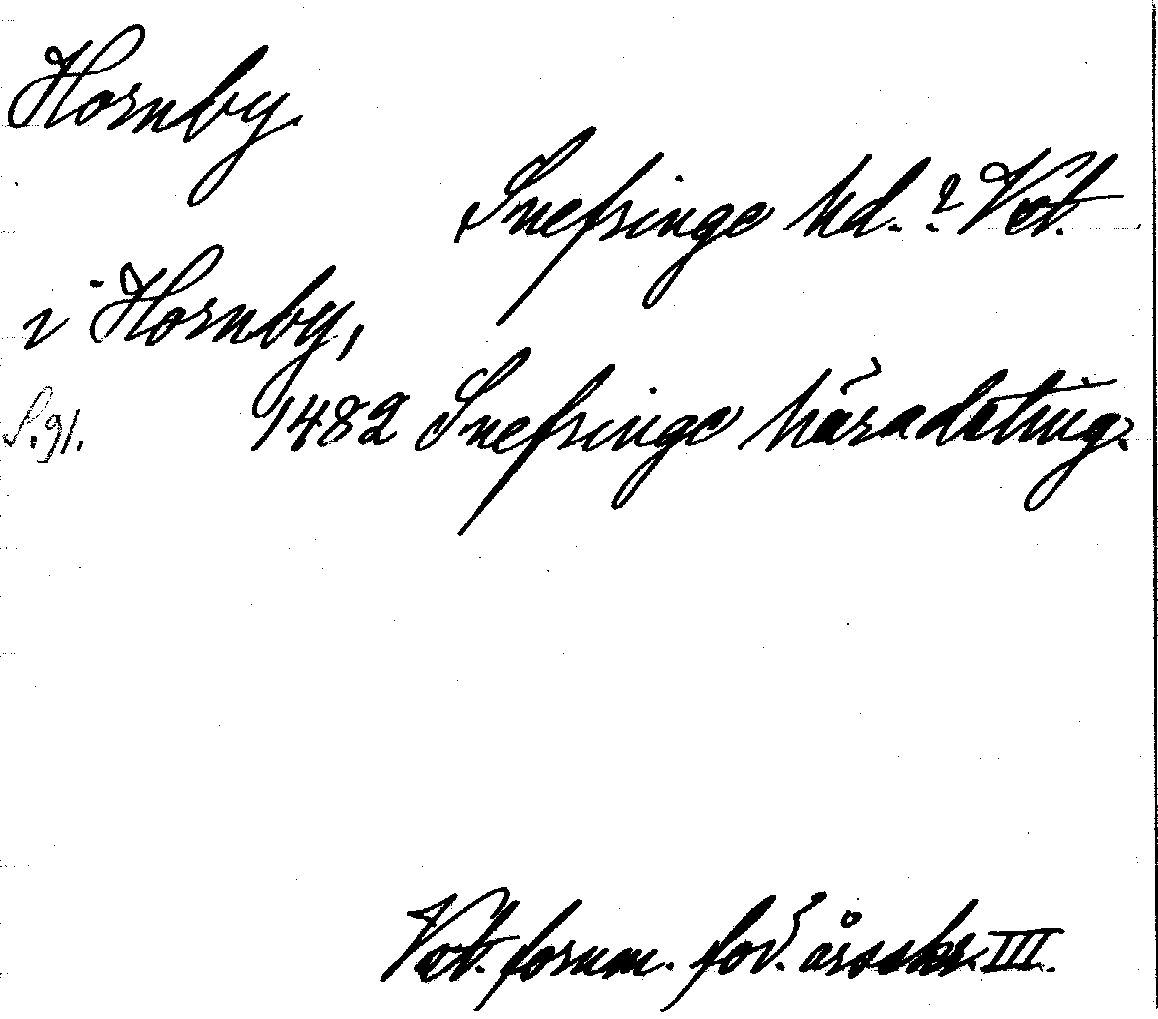 Hornby
Snefringe hd.? Vstl.
i Hornby,
S.91. 1482 Snefringe häradsting.
Vstl. fornm. för. årsskr. III.